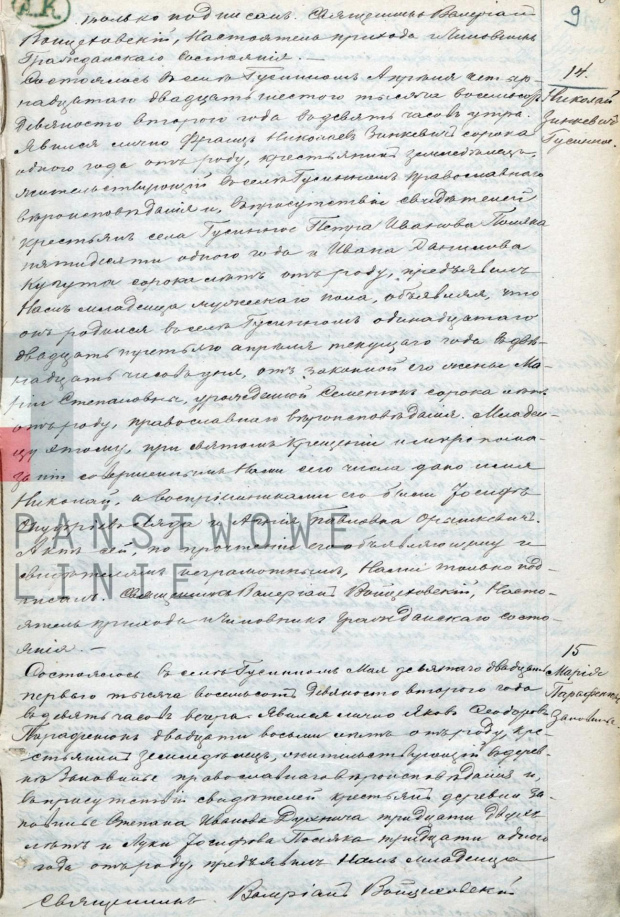 А.К.
9
только подписанъ. Священникъ Валеріанъ
Войцеховскій, Настоятель прихода и Чиновникъ
Гражданскаго Состоянія. —
14.
Николай
Зинкевичъ
Гусинное.
Состоялось въ селѣ Гусинномъ Апрѣля четыр-
надцатаго двадцать шестого тысяча восемьсотъ
девяносто второго года въ девять часовъ утра.
Явился лично Францъ Николаевъ Зинкевичъ сорока
одного года отъ роду, крестьянинъ земледѣлецъ,
жительствующій въ селѣ Гусинномъ православнаго
вѣроисповѣданія и, въ присутствіи свидѣтелей
крестьянъ села Гусинное Петра Иванова Поляка
пятидесяти одного года и Ивана Данилова
сорока лѣтъ отъ роду, предъявилъ
Намъ младенца мужескаго пола, объявляя, что
онъ родился въ селѣ Гусинномъ одинадцатаго
двадцать третьяго апрѣля текущаго года въ две-
надцать часовъ дня, отъ законной его жены Ма-
ріи Степановны, урожденной Семенюкъ сорока лѣтъ
отъ роду, православнаго вѣроисповѣданія. Младен-
цу этому, при святомъ крещеніи и миропома-
заніи совершенномъ Нами сего числа дано имя
Николай, а воспріемниками его были Іосифъ
и Анна Павловна
Актъ сей, по прочтеніи его объявляющему и
свидѣтелямъ неграмотнымъ, Нами только под-
писанъ. Священникъ Валеріанъ Войцеховскій, Насто-
ятель прихода и Чиновникъ Гражданскаго состо-
янія. —
15
Марія
Парафенюкъ
Заповнье.
Состоялось въ селѣ Гусинномъ Мая девятаго двадцать
перваго тысяча восемьсотъ девяносто второго года
въ девять часовъ вечера. Явился лично Яковъ Ѳеодоровъ
Парафенюкъ двадцати восьми лѣтъ отъ роду, кре-
стьянинъ земледѣлецъ, жительствующій въ дерев-
нѣ православнаго вѣроисповѣданія и,
въ присутствіи свидѣтелей крестьянъ деревни За-
Степана Иванова тридцати двухъ
лѣтъ и Луки Іосифова Поляка тридцати одного
года отъ роду, предъявилъ Намъ младенца
Священникъ Валеріанъ Войцеховскій
PAŃSTWOWE
LINIE